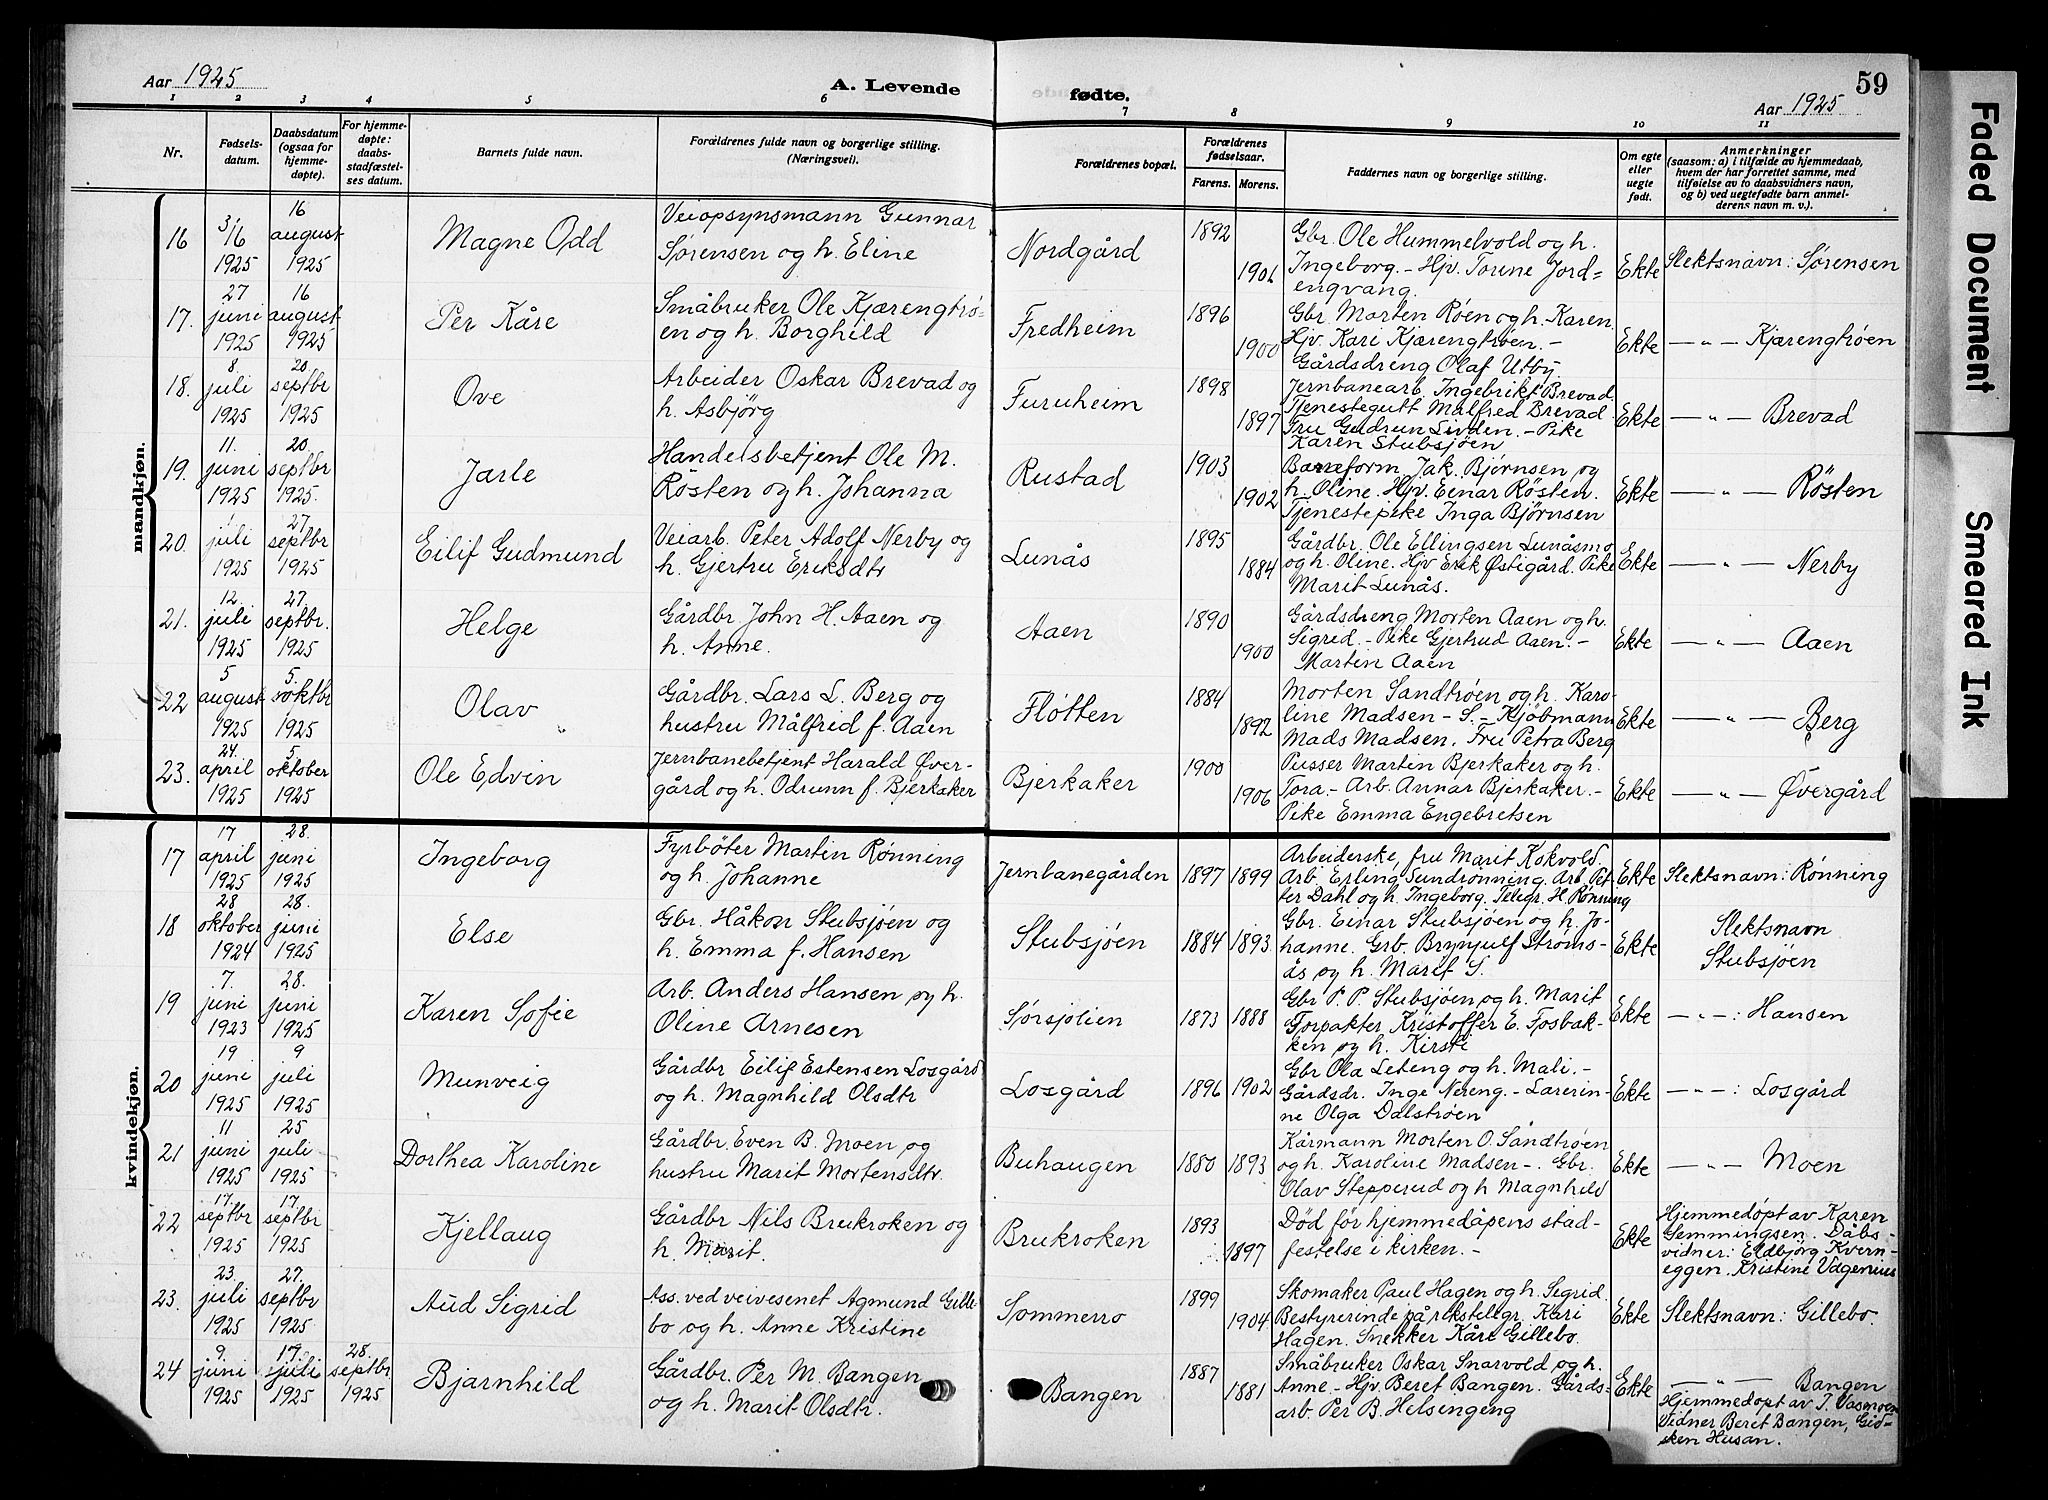 Aar 1925
A. Levende
fødte.
Aar 1925
59
1 2 3 4 5 6 7 8 9 10 11
Nr.
Fødsels-
datum.
Daabsdatum
(ogsaa for
hjemme-
døpte).
For hjemme-
døpte:
daabs-
stadfæstel-
ses datum.
Barnets fulde navn.
Forældrenes fulde navn og borgerlige stilling.
(Næringsvei).
Forældrenes bopæl.
Forældrenes
fødselsaar.
Farens. Morens.
Faddernes navn og borgerlige stilling.
Om egte
eller
uegte
født.
Anmerkninger
(saasom: a) i tilfælde av hjemmedaab,
hvem der har forrettet samme, med
tilføielse av to daabsvidners navn,
og b) ved uegtefødte barn anmel-
derens navn m. v.).
mandkjøn.
16
3/6
1925
16
august
1925
Magne Odd
Veiopsynsmann Gunnar
Sørensen og h. Eline
Nordgård
1892
1901
Gbr. Ole Hummelvold og h.
Ingeborg. - Hjv. Torine Jord-
engvang.
Ekte
Slektsnavn: Sørensen
17.
27
juni
1925
16
august
1925
Per Kåre
Småbruker Ole Kjærengtrø-
en og h. Borghild
Fredheim
1896
1900
Gbr. Morten Røen og h. Karen.
Hjv. Kari Kjærengtrøen. -
Gårdsdreng Olaf Utby.
Ekte
— " — Kjærengtrøen
18.
8
juli
1925
20.
septbr
1925
Ove
Arbeider Oskar Brevad og
h. Asbjörg
Furuheim
1898
1897
Jernbanearb. Ingebrikt Brevad.
Tjenestegutt Malfred Brevad.
Fru Gudrun Livden. - Pike
Karen Stubsjøen
Ekte
— " — Brevad
19.
11.
juni
1925
20.
septbr
1925.
Jarle
Handelsbetjent Ole M.
Rösten og h. Johanna
Rustad
1903
1902
Baneform. Jak. Bjørnsen og
h. Oline. Hjv. Einar Røsten.
Tjenestepike Inga Bjørnsen
Ekte
— " — Rösten
20.
1
juli
1925
27.
septbr
1925
Eilif Gudmund
Veiarb. Peter Adolf Nerby og
h. Gjertru Eriksdtr
Lunås
1895
1884
Gårdbr. Ole Ellingsen Lunåsmo
og h. Oline. Hjv Erik Østigård. Pike
Marit Lunås.
Ekte
— " — Nerby
21.
12.
juli
1925
27.
septbr.
1925
Helge
Gårdbr. John H. Aaen og
h. Anne.
Aaen
1890
1900
Gårdsdreng Morten Aaen og h.
Sigrid. - Pike Gjertrud Aaen. -
Martin Aaen
Ekte
— " — Aaen
22
5
august
1925
5.
oktbr
1925
Olav
Gårdbr. Lars L. Berg og
hustru Målfred f. Aaen
Fløtten
1884
1892
Morten Sandtrøen og h. Karo-
line Madsen - S. - Kjöbmann
Mads Madsen. Fru Petra Berg
Ekte
— " — Berg
23.
24.
april
1925
5
oktober
1925
Ole Edvin
Jernbanebetjent Harald Øver-
gård og h. Odrunn f. Bjerkaker
Bjerkaker
1900
1906
Pusser Martin Bjerkaker og h.
Tora. - Arb. Annar Bjerkaker. -
Pike Emma Engebretsen
Ekte
— " — Øvergård
kvindekjøn.
17
17
april
1925
28.
juni
1925
Ingeborg
Fyrbøter Martin Rønning
og h. Johanne
Jernbanegården
1897 1899
Arbeiderske, fru Marit Kokvold.
Arb. Erling Sundrønning. Arb. Pet-
ter Dahl og h. Ingeborg. Telegr. H. Rønning
Ekte
Slektsnavn: Rønning
18
28
oktober
1924
28.
juni
1925
Else
Gbr. Håkon Stubsjøen og
h. Emma f. Hansen
Stubsjöen
1884 1893
Gbr. Einar Stubsjøen og h. Jo-
hanne. Grb. Brynjulf Stroms-
ås og h. Marit S.
Ekte
Slektsnavn
Stubsjöen
19
7.
juni
1923
28
juni
1925
Karen Sofie
Arb. Anders Hansen og h.
Oline Arnesen
Sørsjølien
1873 1888
Gbr P. P. Stubsjøen og h. Marit
Forpakter Kristoffer E. Fosbak-
ken og h. Kirsti
Ekte
— " —: Hansen
20
19
juni
1925
9
juli
1925
Munveig
Gårdbr. Eilif Estensen Losgård
og h. Magnhild Olsdtr
Losgård
1896 1902
Gbr Ola Leteng og h. Mali. -
Gårdsdr. Inge Nereng. - Lærerin-
ne Olga Dalstrøen
Ekte
— " —: Losgård
21
11
juni
1925
25
juli
1925
Dorthea Karoline
Gårdbr. Even B. Moen og
hustru Marit Mortensdtr.
Buhaugen
1880 1893
Kårmann Morten O. Sandtrøen
og h. Karoline Madsen -. Gbr.
Olav Stepperud og h Magnhild
Ekte
— " — Moen
22
17.
septbr
1925
17.
septbr
1925
Kjellaug
Gårdbr Nils Brukroken og
h. Marit.
Brukroken
1893
1897
Død før hjemmedåpens stad-
festelse i kirken. -
Ekte
Hjemmedøpt av Karen
Gemmingsen. Dåbs-
vidner: Eldbjörg Kvern-
eggen. Kristine Vagenius
23.
23.
juli
1925
27.
septbr
1925
Aud Sigrid
Ass. ved veivesenet Agmund Gille-
bo og h. Anne Kristine
Sommerro
1899
1904
Skomaker Paul Hagen og h. Sigrid.
Bestyrerinde på rikstelegr. Kari
Hagen. Snekker Kåre Gillebo.
Ekte
Slektsnavn: Gillebo.
24
9.
juni
1925
17.
juli
1925
28.
septbr
1925
Bjarnhild
Gårdbr. Per M. Bangen
og h. Marit Olsdtr.
Bangen
1887
1881
Småbruker Oskar Snarvold og h.
Anne - Hjv. Beret Bangen. Gårds-
arb. Per B. Helsengeng
Ekte
— " — Bangen
Hjemmedøpt av J. Vasmoen
Vidner Beret Bangen, Gid-
sken Husan.
Faded Document
Smeared Ink